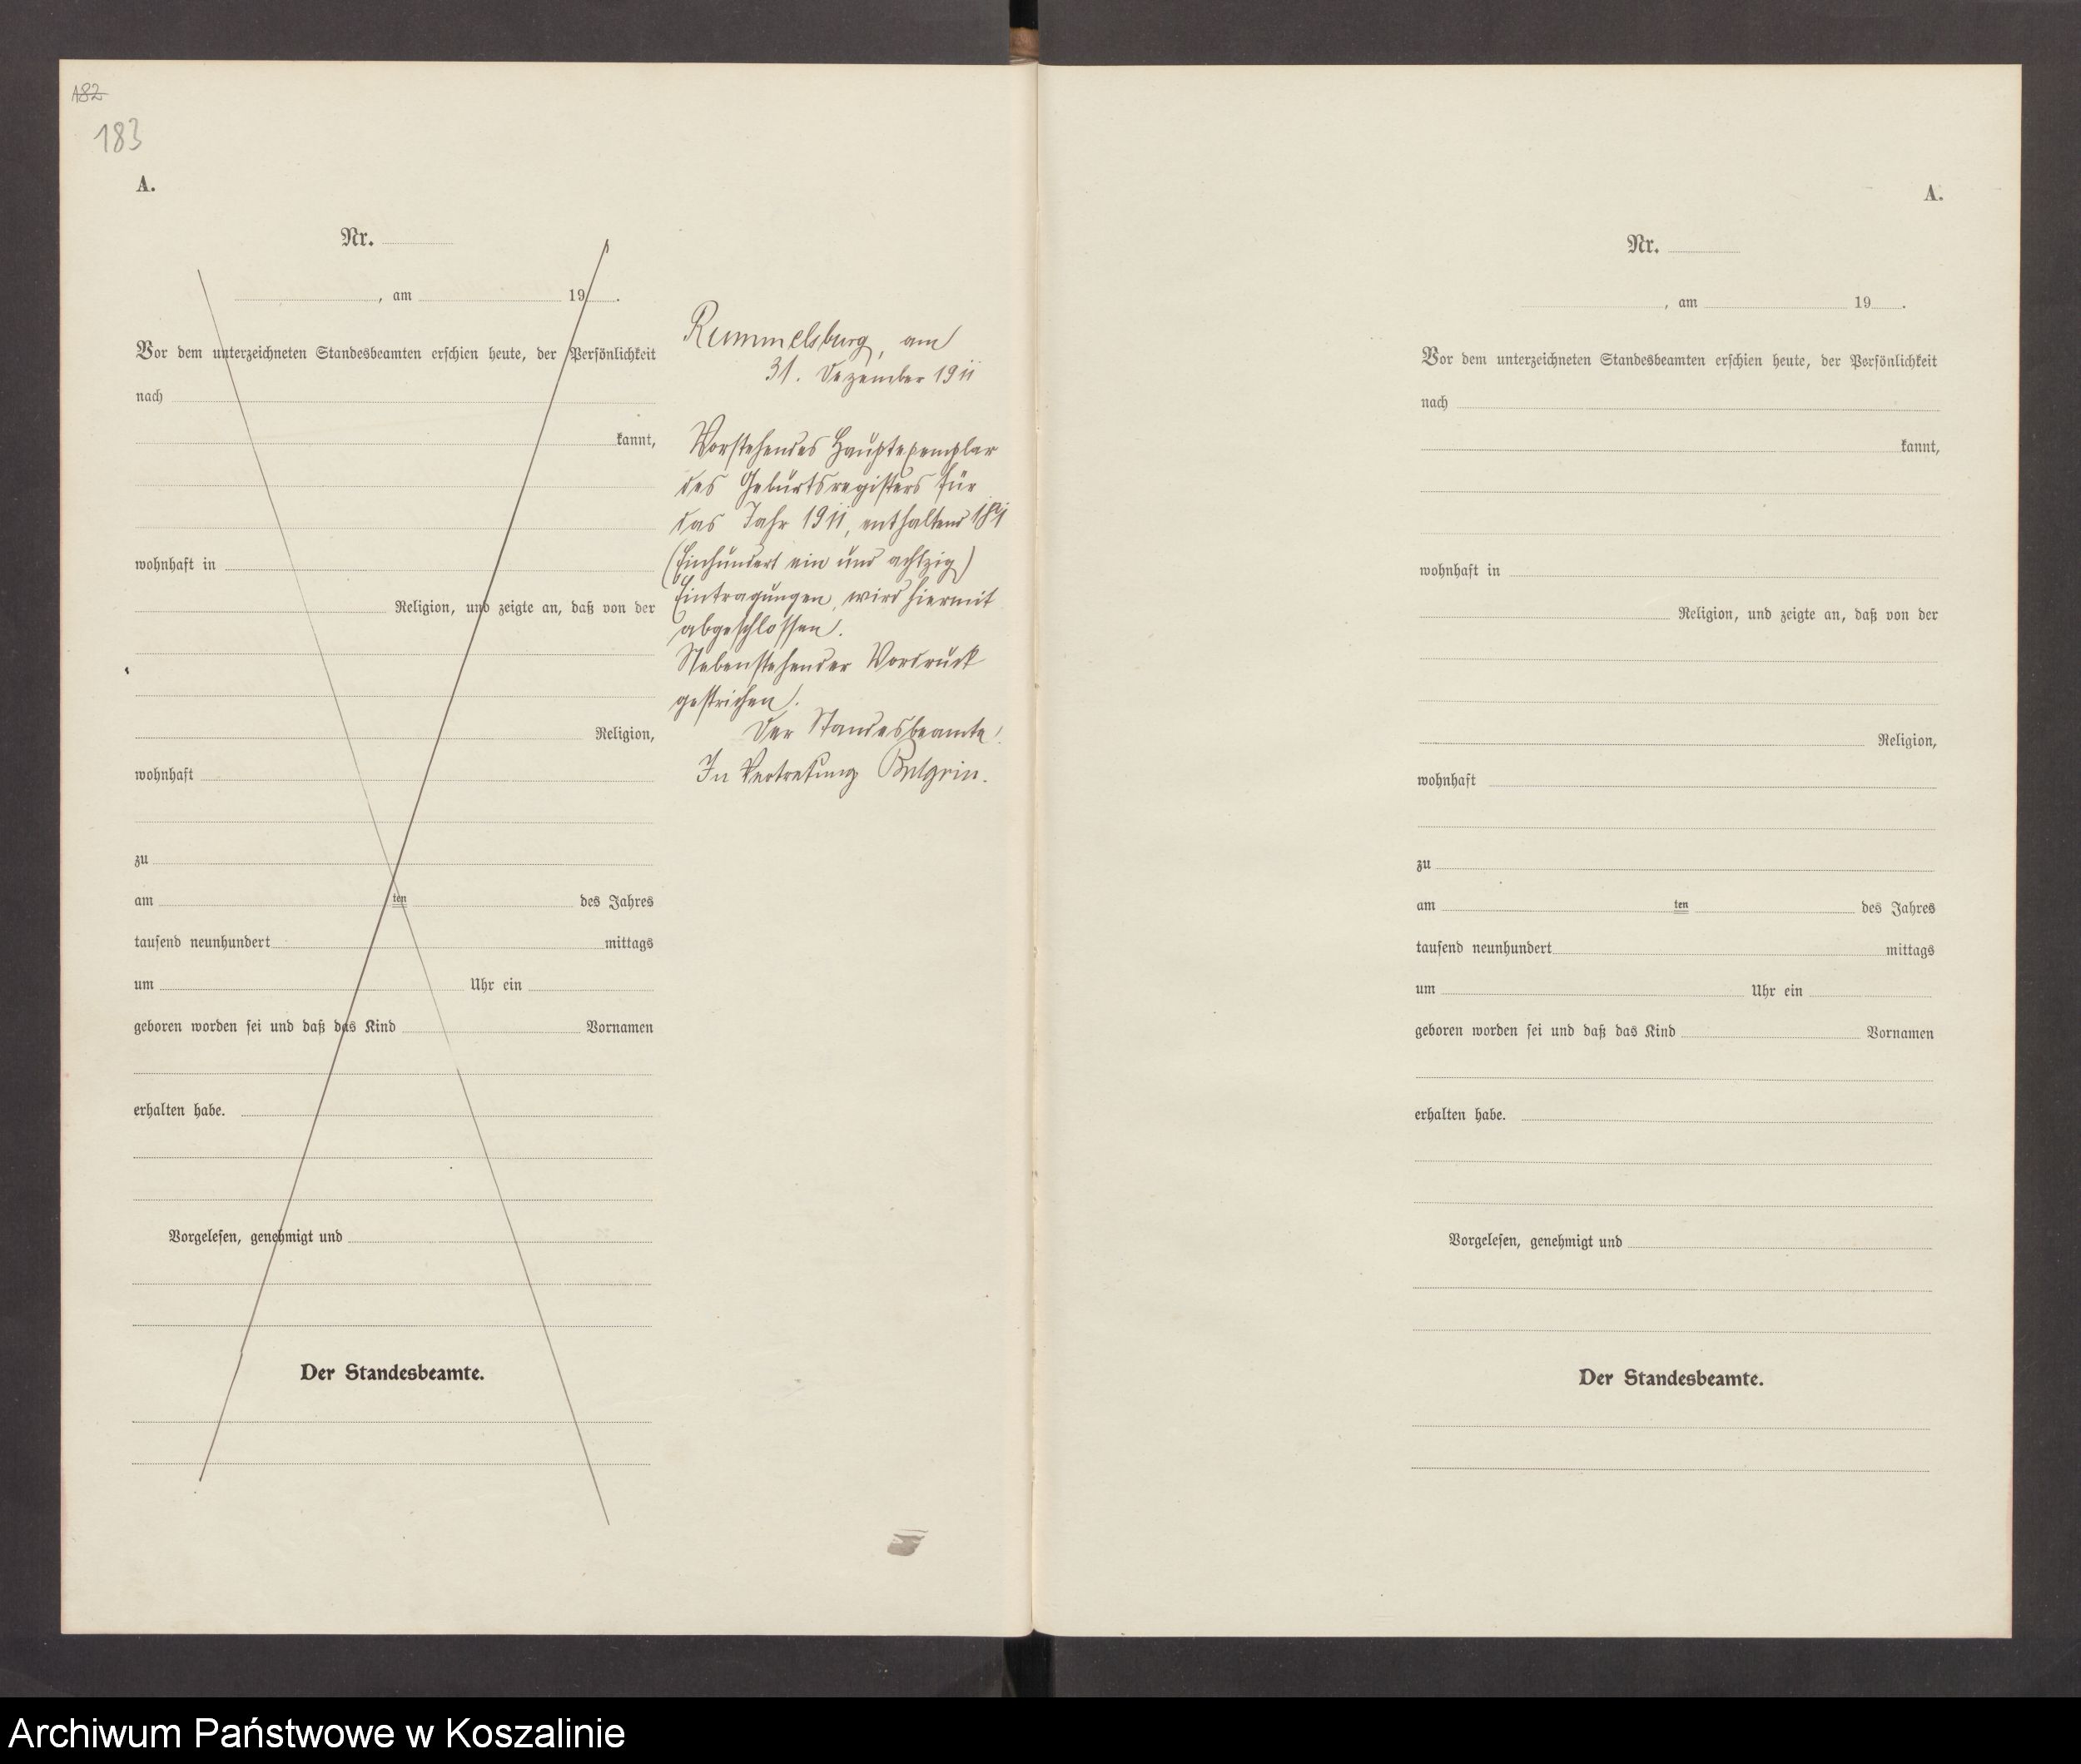 182
183
A.
Nr.
, am 19 .
Vor dem unterzeichneten Standesbeamten erschien heute, der Persönlichkeit
nach
kannt,
wohnhaft in
Religion, und zeigte an, daß von der
Religion,
wohnhaft
zu
am ten des Jahres
tausend neunhundert mittags
um Uhr ein
geboren worden sei und daß das Kind Vornamen
erhalten habe.
Vorgelesen, genehmigt und
Der Standesbeamte.
Rummelsburg, am
31. Dezember 1911
Vorstehendes Hauptexemplar
des Geburtsregisters für
das Jahr 1911, enthaltend 181
(Einhundert ein und achtzig)
Eintragungen, wird hiermit
abgeschlossen.
Nebenstehender Vordruck
gestrichen.
Der Standesbeamte.
In Vertretung
A.
Nr.
, am 19 .
Vor dem unterzeichneten Standesbeamten erschien heute, der Persönlichkeit
nach
kannt,
wohnhaft in
Religion, und zeigte an, daß von der
Religion,
wohnhaft
zu
am ten des Jahres
tausend neunhundert mittags
um Uhr ein
geboren worden sei und daß das Kind Vornamen
erhalten habe.
Vorgelesen, genehmigt und
Der Standesbeamte.
Archiwum Państwowe w Koszalinie